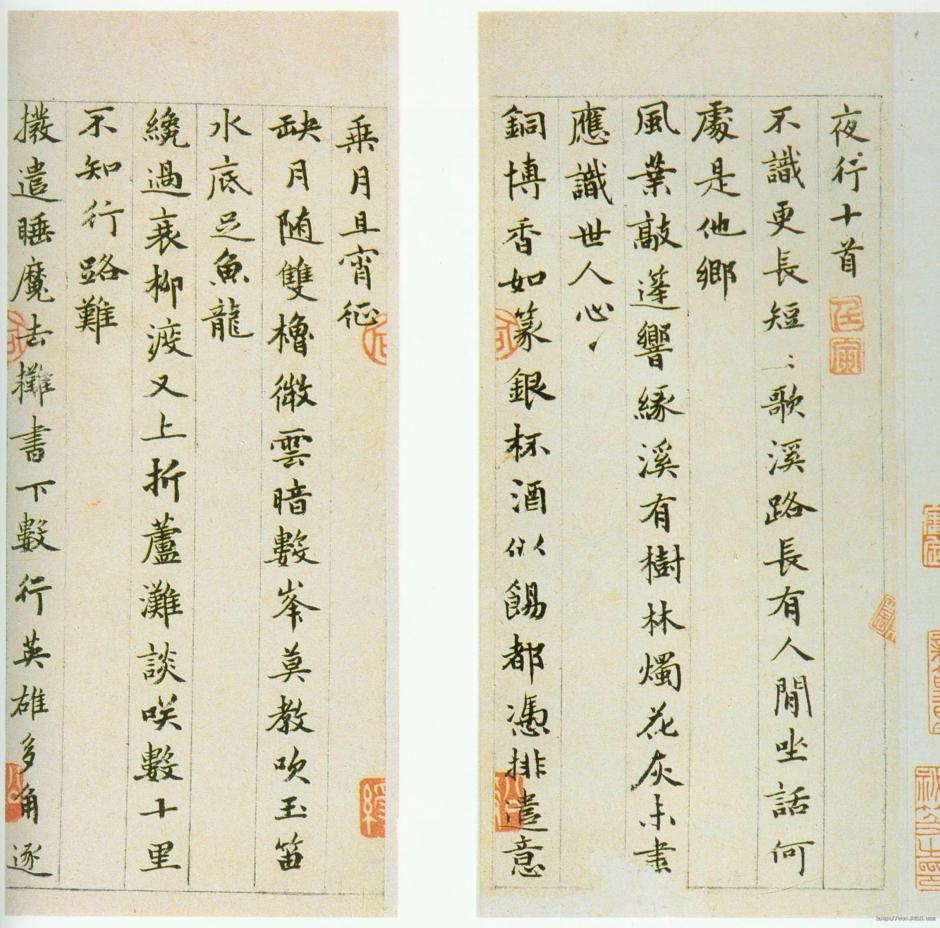 夜行十首
不識更長短ミ歌溪路長有人閒坐話何
處是他鄉
風葉敲蓬響緣溪有樹林燭花灰未盡
應識世人心
銅博香如篆銀杯酒似餳都憑排遣意
乘月且宵征
缺月随雙櫓微雲暗數峯莫教吹玉笛
水底是魚龍
纔過衰柳渡又上折蘆灘談咲數十里
不知行路難
撥遣睡魔去攤書下數行英雄多角逐